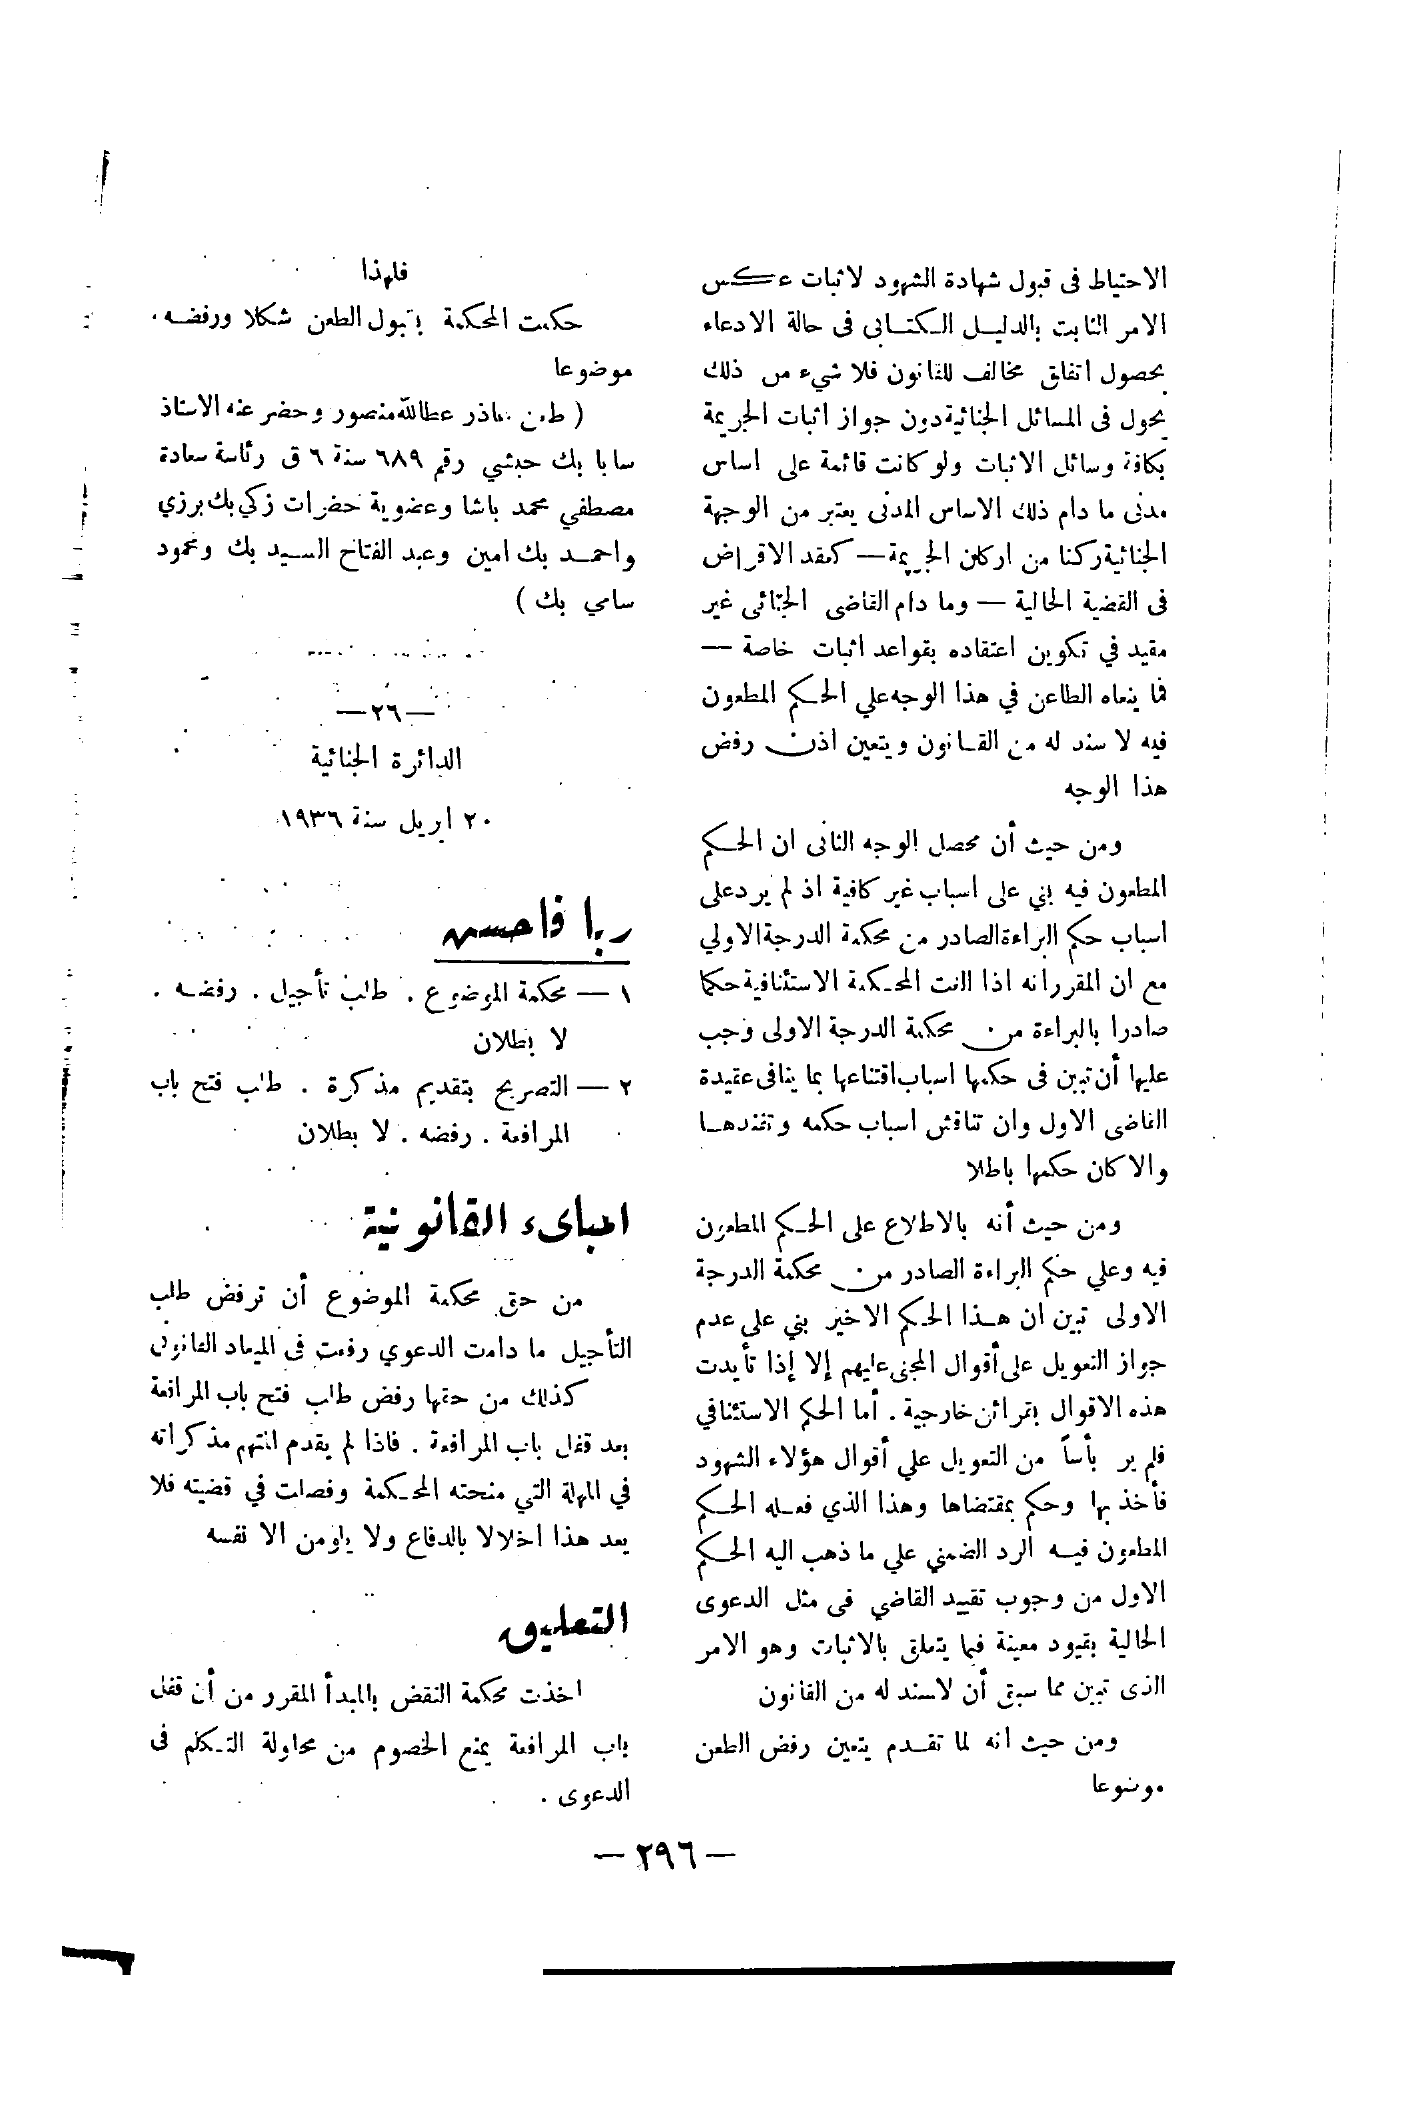 الاحتياط فى قبول شهادة الشهود لاثبات عكس
الامر الثابت بالدليل الكتابى فى حالة الادعاء
بحصول اتفاق مخالف للقانون فلا شيء من ذلك
يحول فى المسائل الجنائية دون جواز اثبات الجريمة
بكافة وسائل الاثبات ولو كانت قائمة على اساس
مدنى ما دام ذلك الاساس المدنى يعتبر من الوجهة
الجنائية ركنا من اركان الجريمة — كعقد الاقراض
فى القضية الحالية — وما دام القاضى الجنائى غير
مقيد في تكوين اعتقاده بقواعد اثبات خاصة —
فما ينعاه الطاعن في هذا الوجه علي الحكم المطعون
فيه لا سند له من القانون ويتعين اذن رفض
هذا الوجه
ومن حيث أن محصل الوجه الثانى ان الحكم
المطعون فيه بني على اسباب غير كافية اذ لم يرد على
اسباب حكم البراءة الصادر من محكمة الدرجة الاولي
مع ان المقرر انه اذا الغت المحكمة الاستئنافية حكما
صادرا بالبراءة من محكمة الدرجة الاولى وجب
عليها أن تبين فى حكمها اسباب اقتناعها بما ينافى عقيدة
القاضى الاول وان تناقش اسباب حكمه وتفندها
والا كان حكمها باطلا
ومن حيث أنه بالاطلاع على الحكم المطعون
فيه وعلي حكم البراءة الصادر من محكمة الدرجة
الاولى تبين ان هذا الحكم الاخير بني على عدم
جواز التعويل على أقوال المجنى عليهم إلا إذا تأيدت
هذه الاقوال بقرائن خارجية . أما الحكم الاستئنافي
فلم ير بأسا من التعويل علي أقوال هؤلاء الشهود
فأخذ بها وحكم بمقتضاها وهذا الذي فعله الحكم
المطعون فيه الرد الضمني علي ما ذهب اليه الحكم
الاول من وجوب تقييد القاضي فى مثل الدعوى
الحالية بقيود معينة فيما يتعلق بالاثبات وهو الامر
الذى تبين مما سبق أن لاسند له من القانون
ومن حيث انه لما تقدم يتعين رفض الطعن
موضوعا
فلهذا
حكمت المحكمة بقبول الطعن شكلا ورفضه
موضوعا
( طعن عطاالله منصور وحضر عنه الاستاذ
سابا بك حبشي رقم ٦٨٩ سنة ٦ ق رئاسة سعادة
مصطفي محمد باشا وعضوية حضرات زكي بك برزي
واحمد بك امين وعبد الفتاح السيد بك ومحمود
سامي بك )
—٢٦—
الدائرة الجنائية
٢٠ ابريل سنة ١٩٣٦
ربا فاحش
١ — محكمة الموضوع . طلب تأجيل . رفضه .
لا بطلان
٢ — التصريح بتقديم مذكرة . طلب فتح باب
المرافعة . رفضه . لا بطلان
المبادىء القانونية
من حق محكمة الموضوع أن ترفض طلب
التأجيل ما دامت الدعوي رفعت فى الميعاد القانونى
كذلك من حقها رفض طلب فتح باب المرافعة
بعد قفل باب المرافعة . فاذا لم يقدم المتهم مذكراته
في المهلة التي منحته المحكمة وفصلت في قضيته فلا
يعد هذا اخلالا بالدفاع ولا يلومن الا نفسه
التعليق
اخذت محكمة النقض بالمبدأ المقرر من أن قفل
باب المرافعة يمنع الخصوم من محاولة التكلم فى
الدعوى .
— ٢٩٦ —